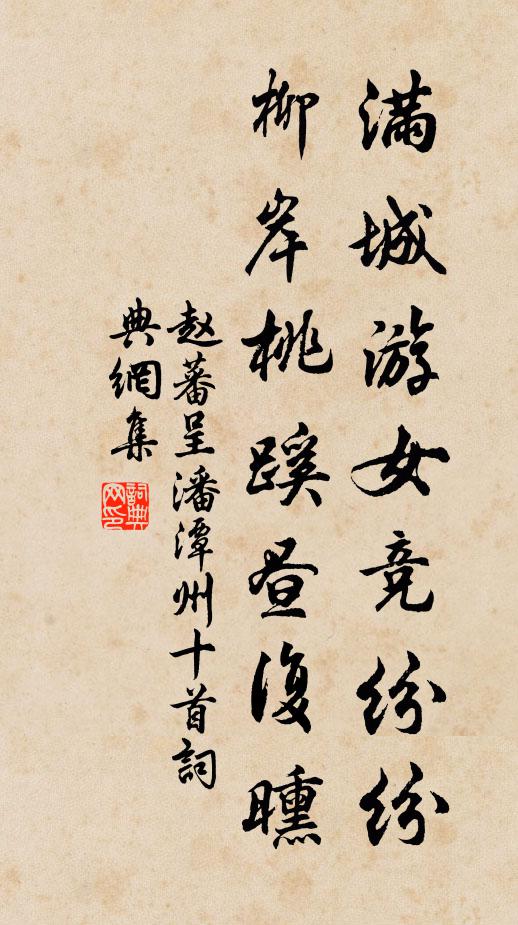 滿城游女竞紛紛
柳岸桃蹊昼復曛
赵蕃呈潘潭州十首詞
典網集
詞典
网印